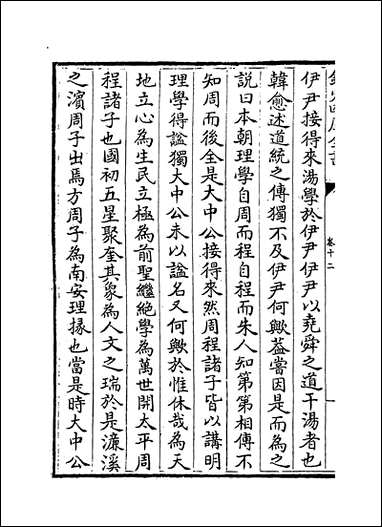 欽定四庫全書
卷十二
伊尹接得來湯學於伊尹伊尹以堯舜之道干湯者也
韓愈述道統之傳獨不及伊尹何歟葢嘗因是而為之
說曰本朝理學自周而程自程而朱人知第第相傳不
知周而後全是大中公接得來然周程諸子皆以講明
理學得諡獨大中公未以諡名又何歟於惟休哉為天
地立心為生民立極為前聖繼絶學為萬世開太平周
程諸子也國初五星聚奎其象為人文之瑞於是濂溪
之濱周子出焉方周子為南安理掾也當是時大中公